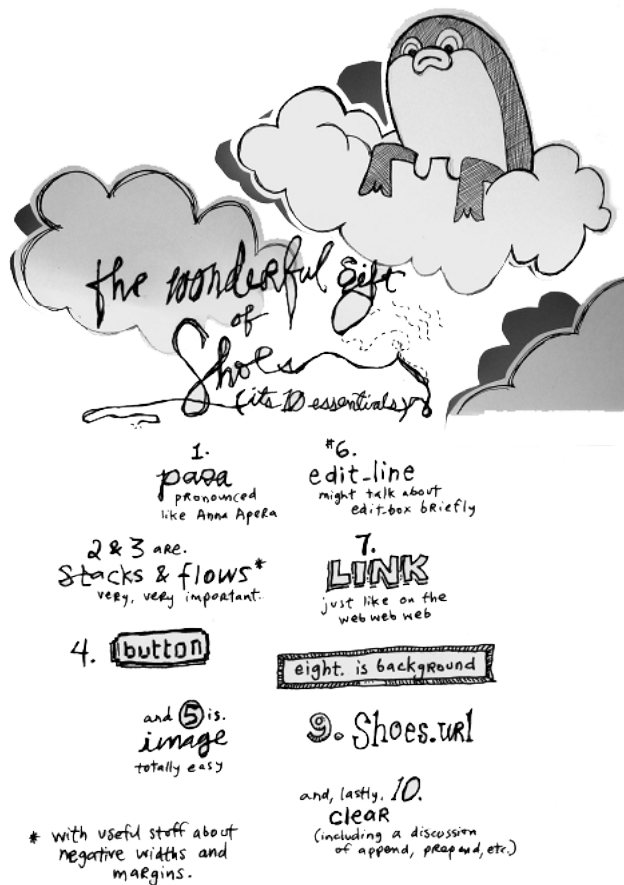 the wonderful gift
of
Shoes
(its 10 essentials)
1.
para
pronounced
like Anna Apera
2 & 3 are.
Stacks & flows*
very, very important.
4. button
and 5 is.
image
totally easy
* with useful stuff about
negative widths and
margins.
#6.
edit_line
might talk about
edit-box briefly
7.
LINK
just like on the
web web web
eight. is background
9. Shoes.url
and, lastly, 10.
clear
(including a discussion
of append, prepend, etc.)